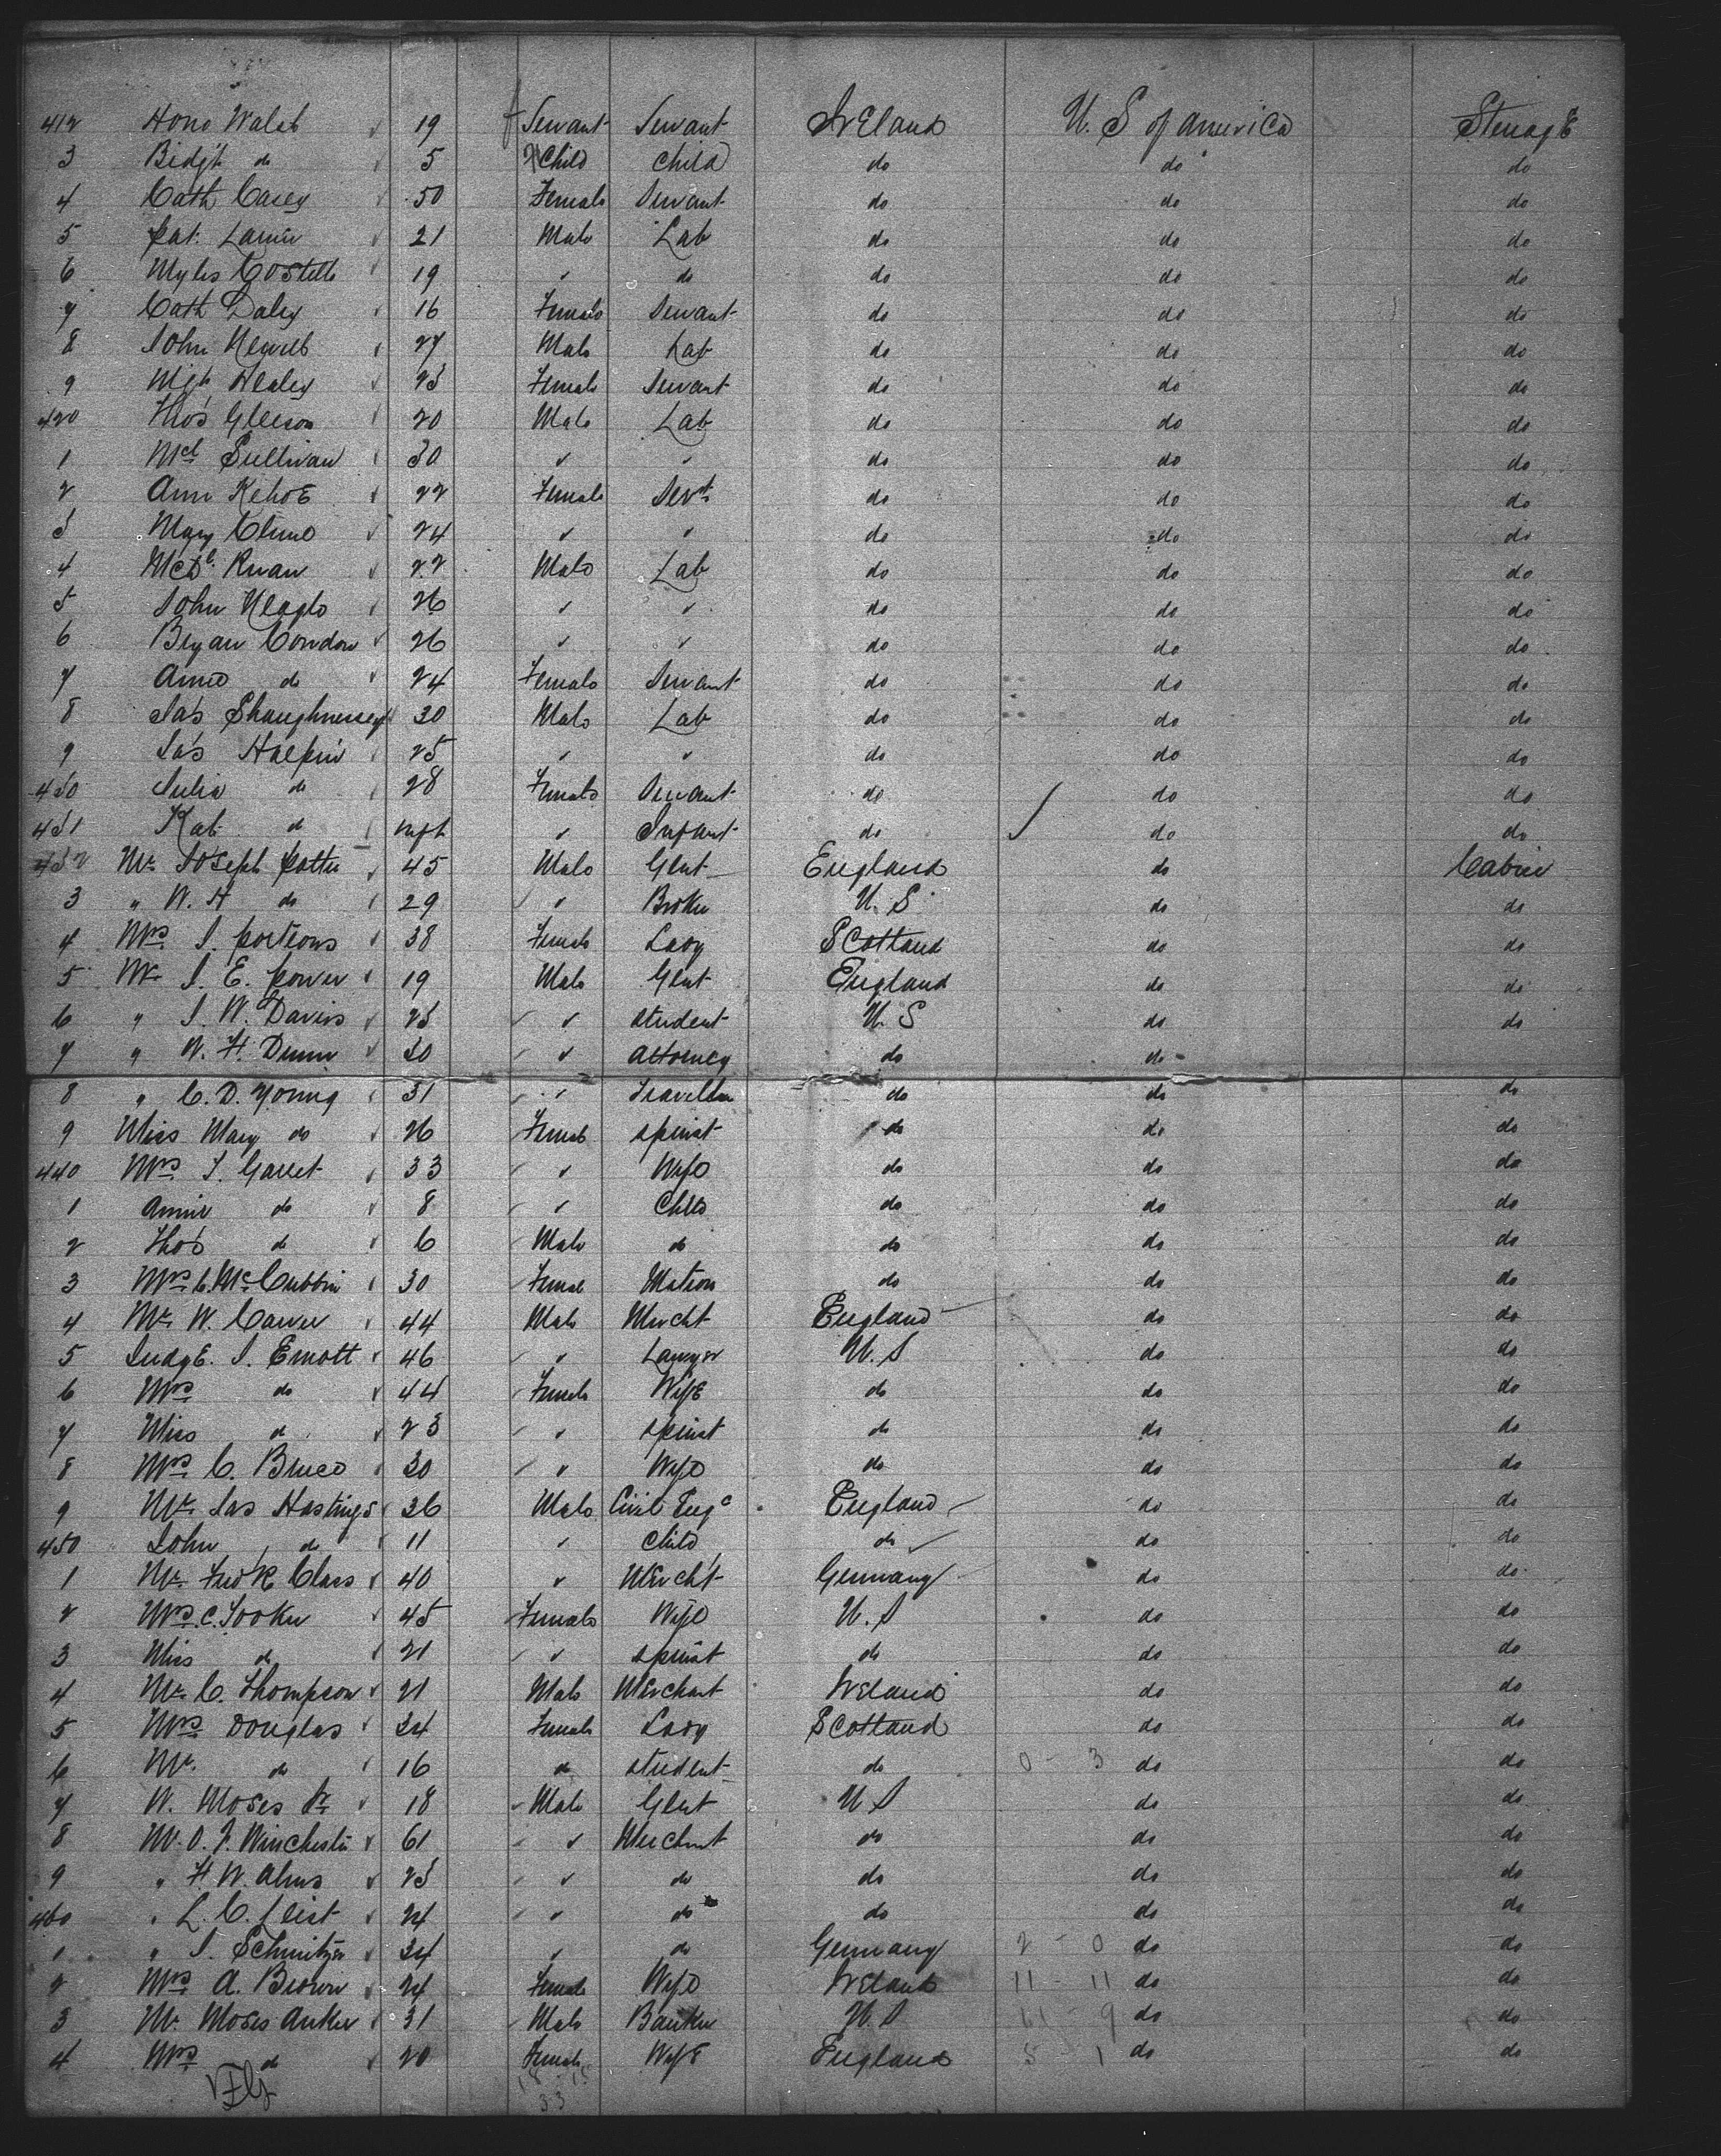 412 Hono Walsh 19 Servant Servant Ireland U. S of america Steerage
3 Bidgt do 5 Child Child do do do
4 Cath Casey 50 Female Servant do do do
5 Pat. 21 Male Lab do do do
6 Myles Costello 19 " do do do do
7 Cath Daley 16 Female Servant do do do
8 John Newell 27 Male Lab do do do
9 Mgt Healey 23 Female Servant do do do
420 Thos Gleeson 20 Male Lab do do do
1 Mcl Sullivan 30 " " do do do
2 Ann Kehoe 22 Female Servt do do do
3 Mary Clune 24 " " do do do
4 Ruan 22 Male Lab do do do
5 John 26 " " do do do
6 Bryan Condon 26 " " do do do
7 Anne do 24 Female Servant do do do
8 Jas Shaughnessy 30 Male Lab do do do
9 Jas Halpin 25 " " do do do
430 Julia do 28 Female Servant do do do
431 Kat do inft " Infant do do do
432 Mr Joseph Potter 45 Male Glent England do Cabin
3 " W. H do 29 " Broker U. S do do
4 Mrs J. Porteous 38 Female Lady Scotland do do
5 Mr J. E. Power 19 Male Glent England do do
6 " J. W. Davis 23 " student U. S do do
7 " W. H. Dunn 30 " attorney do do
8 " C. D. Young 31 " Traveller do do do
9 Miss Mary do 26 Female spinst do do do
440 Mrs J. Garret 33 " Wife do do do
1 Annie do 8 " Child do do do
2 Thos do 6 Male do do do do
3 Mrs C. McCubbin 30 Female Matron do do do
4 Mr W. Carver 44 Male Mercht England do do
5 Judge. J. Emott 46 " Lawyer U. S do do
6 Mrs do 44 Female Wife do do do
7 Miss do 23 " spinst do do do
8 Mrs C. Bruce 30 " Wife do do do
9 Mr Jas Hastings 36 Male Civil Eng England do do
450 John do 11 " Child do do do
1 Mr Fredk Class 40 " Mercht Germany do do
2 Mrs C. Tooker 45 Female Wife U. S do do
3 Miss do 21 " spinst do do do
4 Mr C. Thompson 21 Male Merchant Ireland do do
5 Mrs Douglas 34 Female Lady Scotland do do
6 Mr. do 16 do student do 0 - 3 do do
7 W. Moses Jr 18 Male Glent U. S do do
8 Mr. O. F. Winchester 61 " Merchant do do do
9 " H. W. Alms 23 " do do do do
460 " L. C. Leist 24 " do do do do
1 " J. Schnitzer 34 " do Germany 2 - 0 do do
2 Mrs A. Brown 24 Female Wife Ireland 11 - 11 do do
3 Mr. Moses Anker 31 Male Banker U. S 11 - 9 do do
4 Mrs do 20 Female Wife England 5 - 1 do do
18 - 15
33